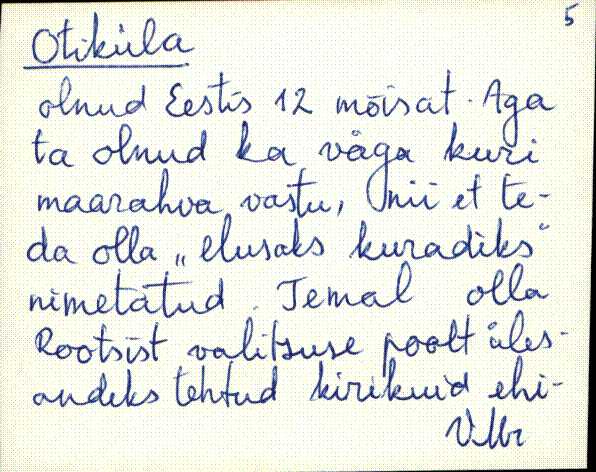 5
Otiküla
olnud Eestis 12 mõisat. Aga
ta olnud ka väga kuri
maarahva vastu, nii et te-
da olla „elusaks kuradiks"
nimetatud. Temal olla
Rootsist valitsuse poolt üles-
andeks tehtud kirikuid ehi-